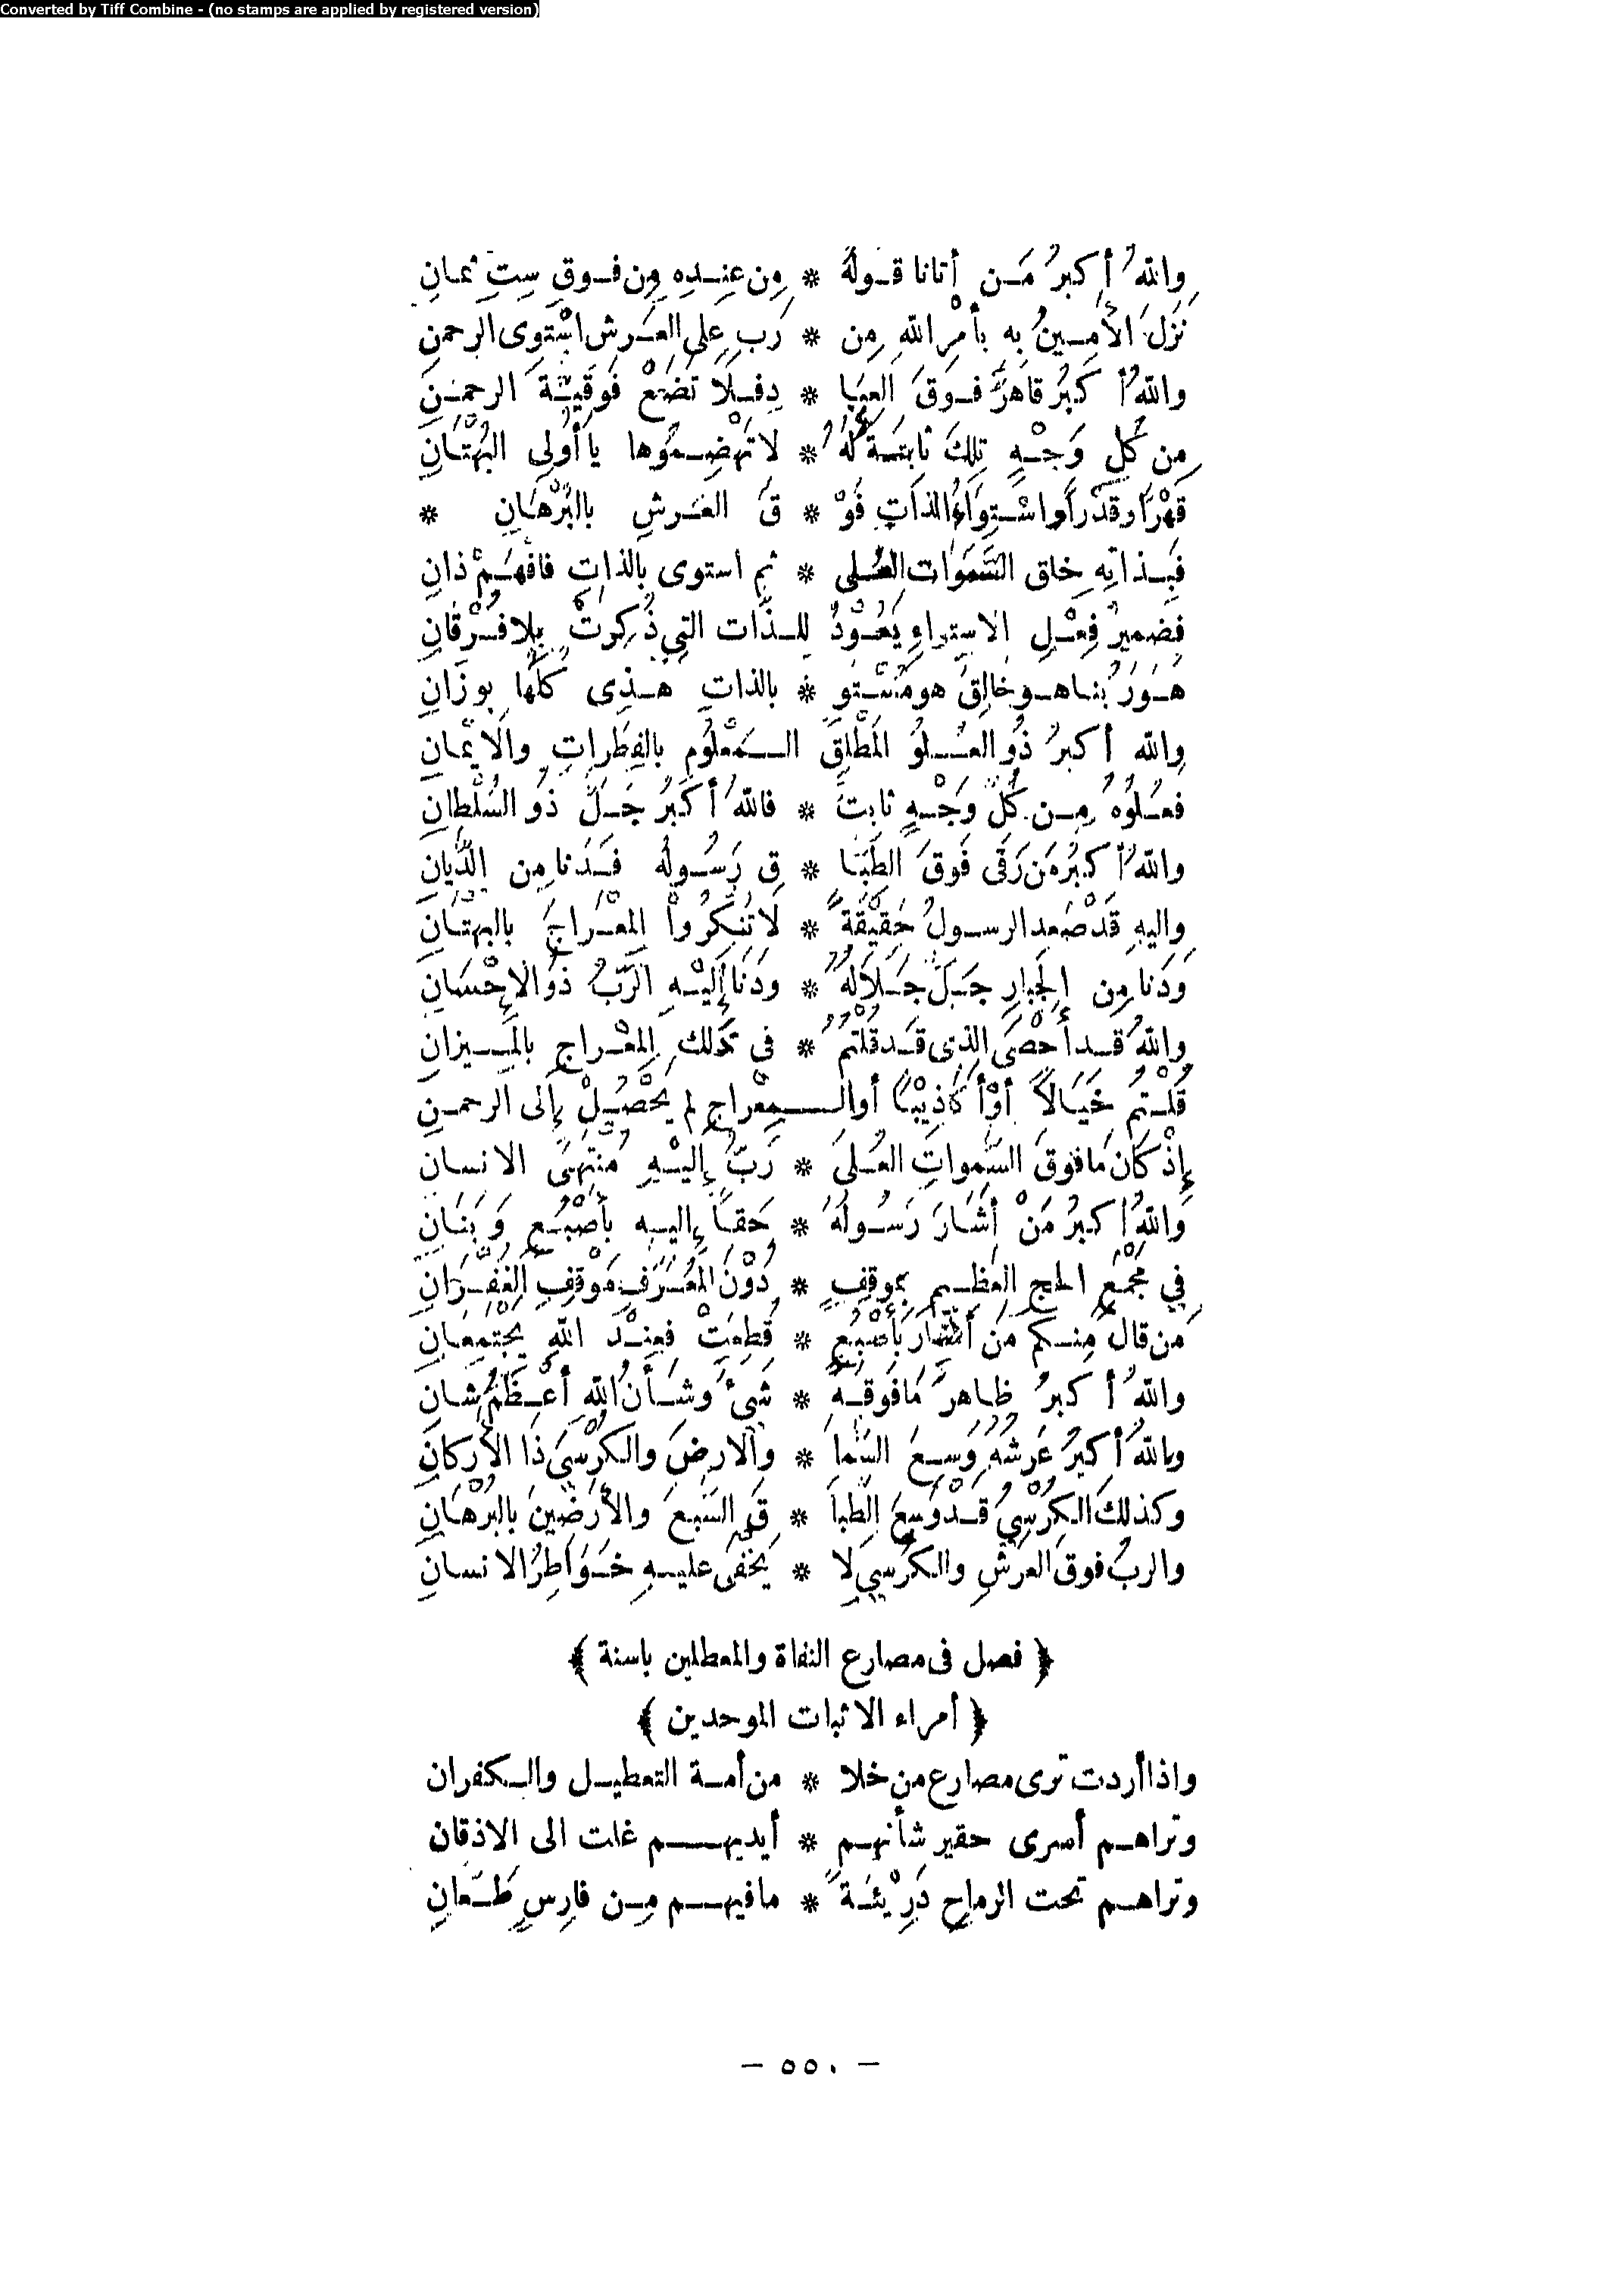 Converted by Tiff Combine - (no stamps are applied by registered version)
واللهُ أكبرُ مَن أتانا قولُهُ * مِن عِندِهِ مِن فوقِ سِتِ ثمانِ
نَزَلَ الأمينُ به بأمْرِ اللهِ مِن * رَبٍ عَلى العَرشِ اسْتوى الرحمنِ
واللهُ أكبرُ قاهرٌ فوقَ العِبَا * دِ فلاَ تَضَعْ فَوقيَّةَ الرحمٰنِ
مِن كُلِ وَجْهٍ تِلكَ ثابتةٌ لَهُ * لا تَهْضِمُوها يا أُولى البُهتَانِ
قَهْرًا وقَدْراً واسْتِوَاءُ الذاتِ فَوْ * قَ العَرشِ بالبُرْهَانِ *
فبِذاتِهِ خلق السَّمَوَات العُلى * ثم استوى بالذاتِ فافْهَمْ ذانِ
فضميرُ فِعْلِ الاستواءِ يَعُودُ للذَّات التِي ذُكِرتْ بِلا فُرْقَانِ
هُوَ رَبُنا هو خَالِقٌ هو مُسْتَوٍ * بالذاتِ هذِى كلُّها بوزَانِ
والله أكبرُ ذُو العُلوُ المُطْلَقِ المَعْلُومِ بالفِطَراتِ والايْمانِ
فعُلوُهُ مِن كُلِّ وَجْهٍ ثابتٌ * فاللهُ أكبَرُ جَلَّ ذُو السُلْطانِ
واللهُ أكبرُ مَن رَقَى فَوقَ الطِبَا * قِ رَسُولُه فَدَنا مِن الدَّيانِ
واليهِ قَدْ صَعِد الرسولُ حَقِيْقَةً * لاَ تُنْكِرُوا المِعْراجَ بالبهتانِ
وَدَنا مِن الجَبارِ جَلَّ جَلاَلهُ * ودَنَا إِلَيْهِ الرَّبُ ذُو الاِحْسَانِ
واللهُ قد أحْصَى الذِى قَد قُلْتُمُ * فى ذلك المِعْراجِ بالمِيزانِ
قُلْتُم خَيَالاً أوْ أَكَاذِيْبًا أو المِعْراج لم يَحْصُلْ إِلى الرحمنِ
إِذْ كَان مَا فوقَ السَّمواتِ العُلَى * رَبٌ إِليْهِ مُنْتَهَى الانسان
واللهُ أكبرُ مَنْ أَشَارَ رَسُولُهُ * حَقاً إِليه بأُصْبُعٍ وَبَنَانِ
فِي مَجْمَعِ الحج العَظِيمِ بموقِفٍ * دُوْنَ المُعَرَّفِ مَوْقِفِ الغُفْرَانِ
مَن قالَ مِنكم مَن أَشَارَ بأُصْبُعٍ * قُطِعَتْ فعِنْدَ اللهِ يَجْتمِعَانِ
واللهُ أكبرُ ظاهرٌ مَا فَوقَهُ * شَىْءٌ وشَأنُ اللهِ أعْظَمُ شانِ
واللهُ أكبرُ عَرشُهُ وَسِعَ السَّمَا * والارضَ والكُرْسِيَّ ذَا الأَركَانِ
وكذلكَ الكُرْسِيُّ قَدْ وَسِعَ الطِّبا * قَ السَّبعَ والأَرَضِينَ بالبُرْهَانِ
والربُ فوقَ العرْشِ والكُرْسِيِ لا * يَخْفَى عليهِ خَوَاطِرُ الانسانِ
﴿ فصل فى مصارع النفاة والمعطلين باسنة ﴾
﴿ أمراء الاثبات الموحدين ﴾
واذا أردت ترى مصارع من خلا * من أمة التعطيل والكفران
وتراهم أسرى حقير شأنهم * أيديهم غلت الى الاذقان
وتراهم تحت الرماحِ دَرِيْئَةً * مافيهم مِن فارِسٍ طَعانِ
— ٥٥٠ —